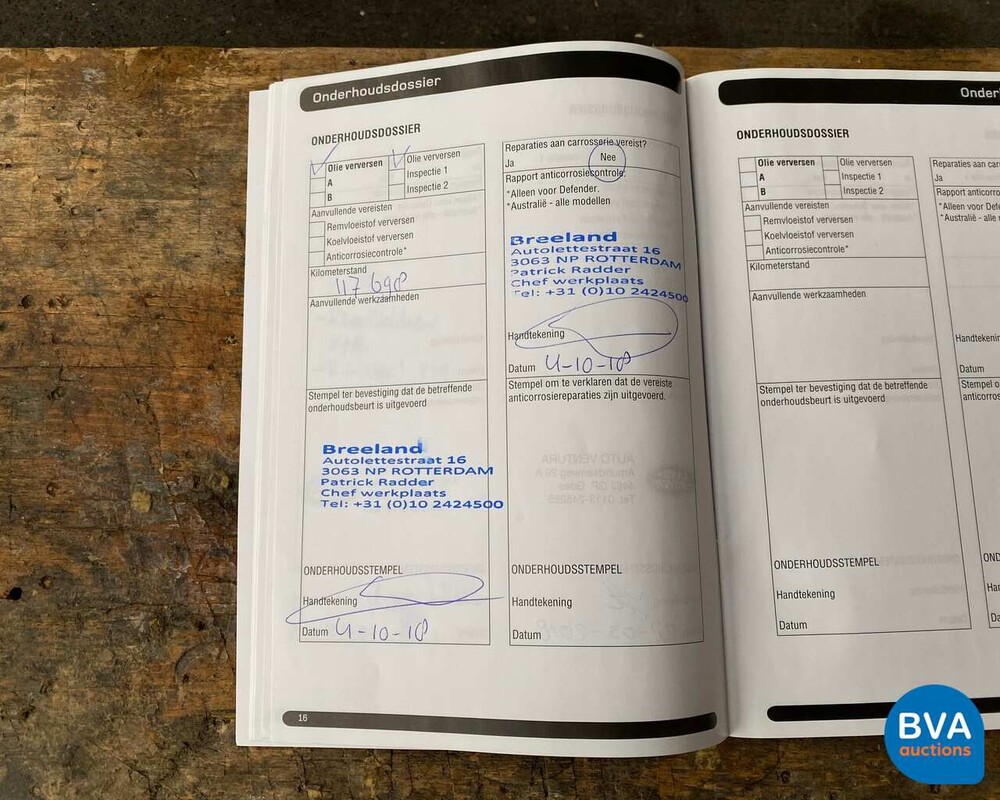 Onderhoudsdossier
ONDERHOUDSDOSSIER
Olie verversen
A
B
Olie verversen
Inspectie 1
Inspectie 2
Aanvullende vereisten
Remvloeistof verversen
Koelvloeistof verversen
Anticorrosiecontrole*
Kilometerstand
117 698
Aanvullende werkzaamheden
Stempel ter bevestiging dat de betreffende
onderhoudsbeurt is uitgevoerd
Breeland
Autolettestraat 16
3063 NP ROTTERDAM
Patrick Radder
Chef werkplaats
Tel: +31 (0)10 2424500
ONDERHOUDSSTEMPEL
Handtekening
Datum 4-10-18
Reparaties aan carrosserie vereist?
Ja Nee
Rapport anticorrosiecontrole:
*Alleen voor Defender.
*Australië - alle modellen
Breeland
Autolettestraat 16
3063 NP ROTTERDAM
Patrick Radder
Chef werkplaats
Tel: +31 (0)10 2424500
Handtekening
Datum 4-10-18
Stempel om te verklaren dat de vereiste
anticorrosiereparaties zijn uitgevoerd.
ONDERHOUDSSTEMPEL
Handtekening
Datum
16
ONDERHOUDSDOSSIER
Olie verversen
A
B
Olie verversen
Inspectie 1
Inspectie 2
Aanvullende vereisten
Remvloeistof verversen
Koelvloeistof verversen
Anticorrosiecontrole*
Kilometerstand
Aanvullende werkzaamheden
Stempel ter bevestiging dat de betreffende
onderhoudsbeurt is uitgevoerd
ONDERHOUDSSTEMPEL
Handtekening
Datum
Reparaties aan
Ja
Rapport
*Australië - alle
Datum
Stempel
BVA
auctions